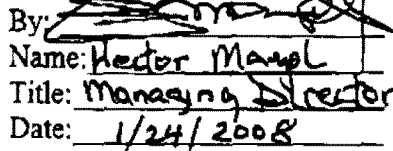 By:
Name: Hector
Title: Managing Director
Date: 1/24/2008